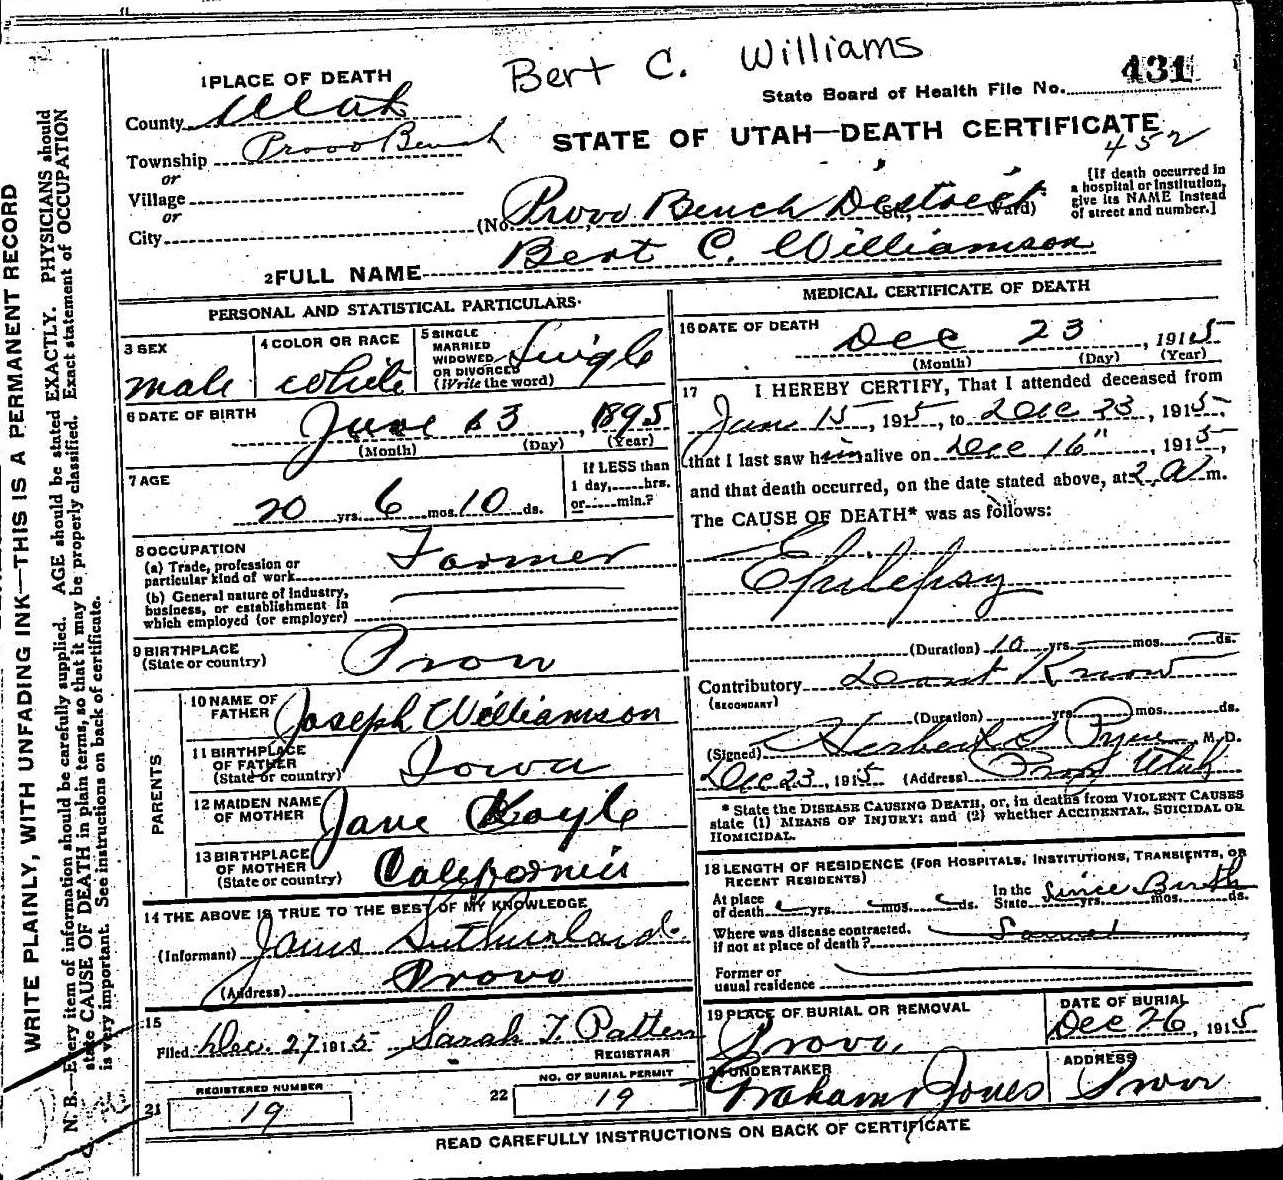 Bert C. Williams
1 PLACE OF DEATH
431
State Board of Health File No.
County Utah
STATE OF UTAH—DEATH CERTIFICATE
452
Township Provo Bench
or
Village
or
City
(No. Provo Bench District St., Ward)
[If death occurred in
a hospital or institution,
give its NAME instead
of street and number.]
2 FULL NAME Bert C. Williamson
PERSONAL AND STATISTICAL PARTICULARS
3 SEX
male
4 COLOR OR RACE
White
5 SINGLE
MARRIED
WIDOWED
OR DIVORCED
(Write the word)
Single
6 DATE OF BIRTH
June 13, 1895
(Month) (Day) (Year)
7 AGE
20 yrs. 6 mos. 10 ds.
If LESS than
1 day, hrs.
or min.?
8 OCCUPATION
(a) Trade, profession or
particular kind of work Farmer
(b) General nature of industry,
business, or establishment in
which employed (or employer)
9 BIRTHPLACE
(State or country)
Provo
PARENTS
10 NAME OF
FATHER
Joseph Williamson
11 BIRTHPLACE
OF FATHER
(State or country)
Iowa
12 MAIDEN NAME
OF MOTHER
Jane Koyle
13 BIRTHPLACE
OF MOTHER
(State or country)
California
14 THE ABOVE IS TRUE TO THE BEST OF MY KNOWLEDGE
(Informant) James Sutherland
(Address) Provo
15
Filed Dec. 27 1915 Sarah T. Patten
REGISTRAR
21
REGISTERED NUMBER
19
22
NO. OF BURIAL PERMIT
19
MEDICAL CERTIFICATE OF DEATH
16 DATE OF DEATH
Dec 23, 1915
(Month) (Day) (Year)
17 I HEREBY CERTIFY, That I attended deceased from
June 15, 1915, to Dec 23, 1915,
that I last saw him alive on Dec 16", 1915,
and that death occurred, on the date stated above, at 2 a m.
The CAUSE OF DEATH* was as follows:
Epilepsy
(Duration) 10 yrs. mos. ds.
Contributory Dont Know
(SECONDARY)
(Duration) yrs. mos. ds.
(Signed) Herbert S Pyne, M.D.
Dec 23, 1915 (Address) Provo Utah
* State the DISEASE CAUSING DEATH, or, in deaths from VIOLENT CAUSES
state (1) MEANS OF INJURY; and (2) whether ACCIDENTAL, SUICIDAL OR
HOMICIDAL.
18 LENGTH OF RESIDENCE (FOR HOSPITALS, INSTITUTIONS, TRANSIENTS, OR
RECENT RESIDENTS)
At place
of death yrs. mos. ds.
In the
State Since Birth yrs. mos. ds.
Where was disease contracted,
if not at place of death?
Former or
usual residence
19 PLACE OF BURIAL OR REMOVAL
Provo,
DATE OF BURIAL
Dec 26, 1915
20 UNDERTAKER
Graham & Jones
ADDRESS
Provo
READ CAREFULLY INSTRUCTIONS ON BACK OF CERTIFICATE
WRITE PLAINLY, WITH UNFADING INK—THIS IS A PERMANENT RECORD
N. B.—Every item of information should be carefully supplied. AGE should be stated EXACTLY. PHYSICIANS should
state CAUSE OF DEATH in plain terms, so that it may be properly classified. Exact statement of OCCUPATION
is very important. See instructions on back of certificate.